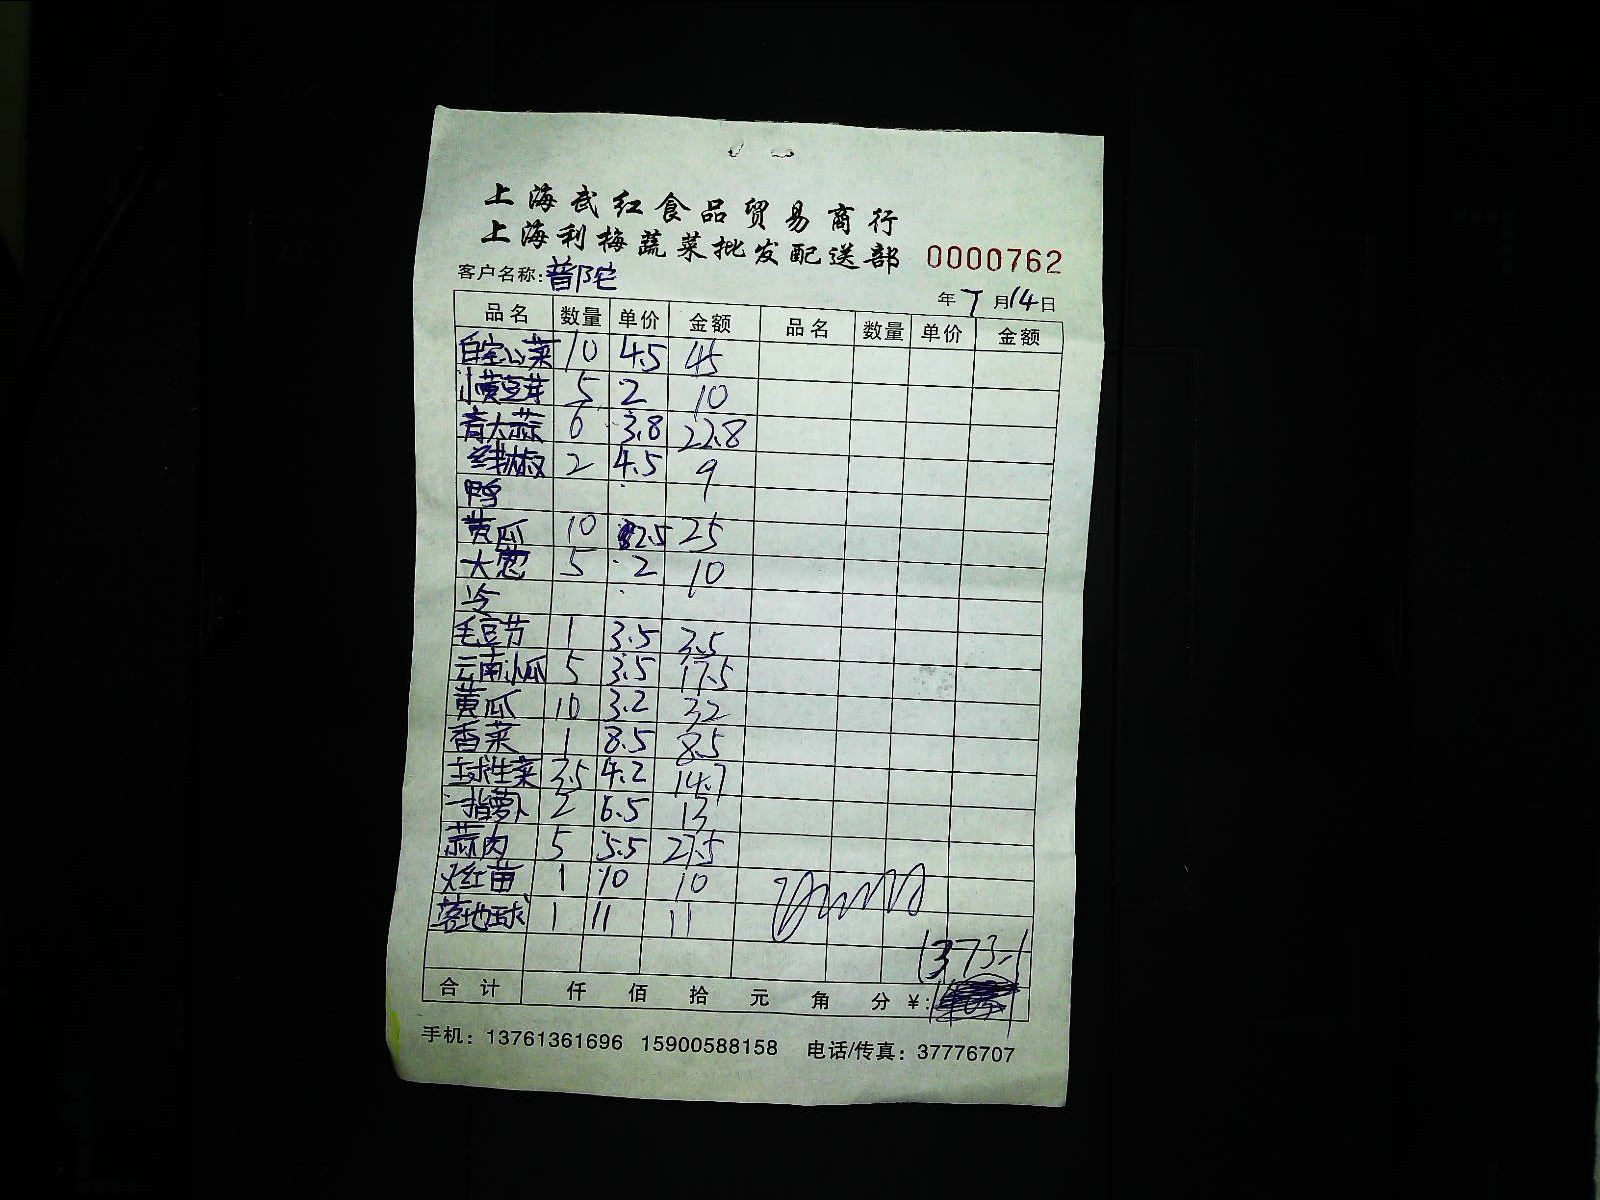 上海武红食品贸易商行
上海利梅蔬菜批发配送部 0000762
客户名称:普陀
年 7 月 14 日
品名 数量 单价 金额 品名 数量 单价 金额
白空心菜 10 4.5 45
小黄豆芽 5 2 10
青大蒜 6 3.8 22.8
线椒 2 4.5 9
鸭
黄瓜 10 2.5 25
大葱 5 2 10
冷
毛豆节 1 3.5 3.5
云南小瓜 5 3.5 17.5
黄瓜 10 3.2 32
香菜 1 8.5 8.5
球生菜 3.5 4.2 14.7
指萝卜 2 6.5 13
蒜肉 5 5.5 27.5
火红苗 1 10 10
落地球 1 11 11
1373.1
合计 仟 佰 拾 元 角 分 ¥:
手机: 13761361696 15900588158 电话/传真: 37776707